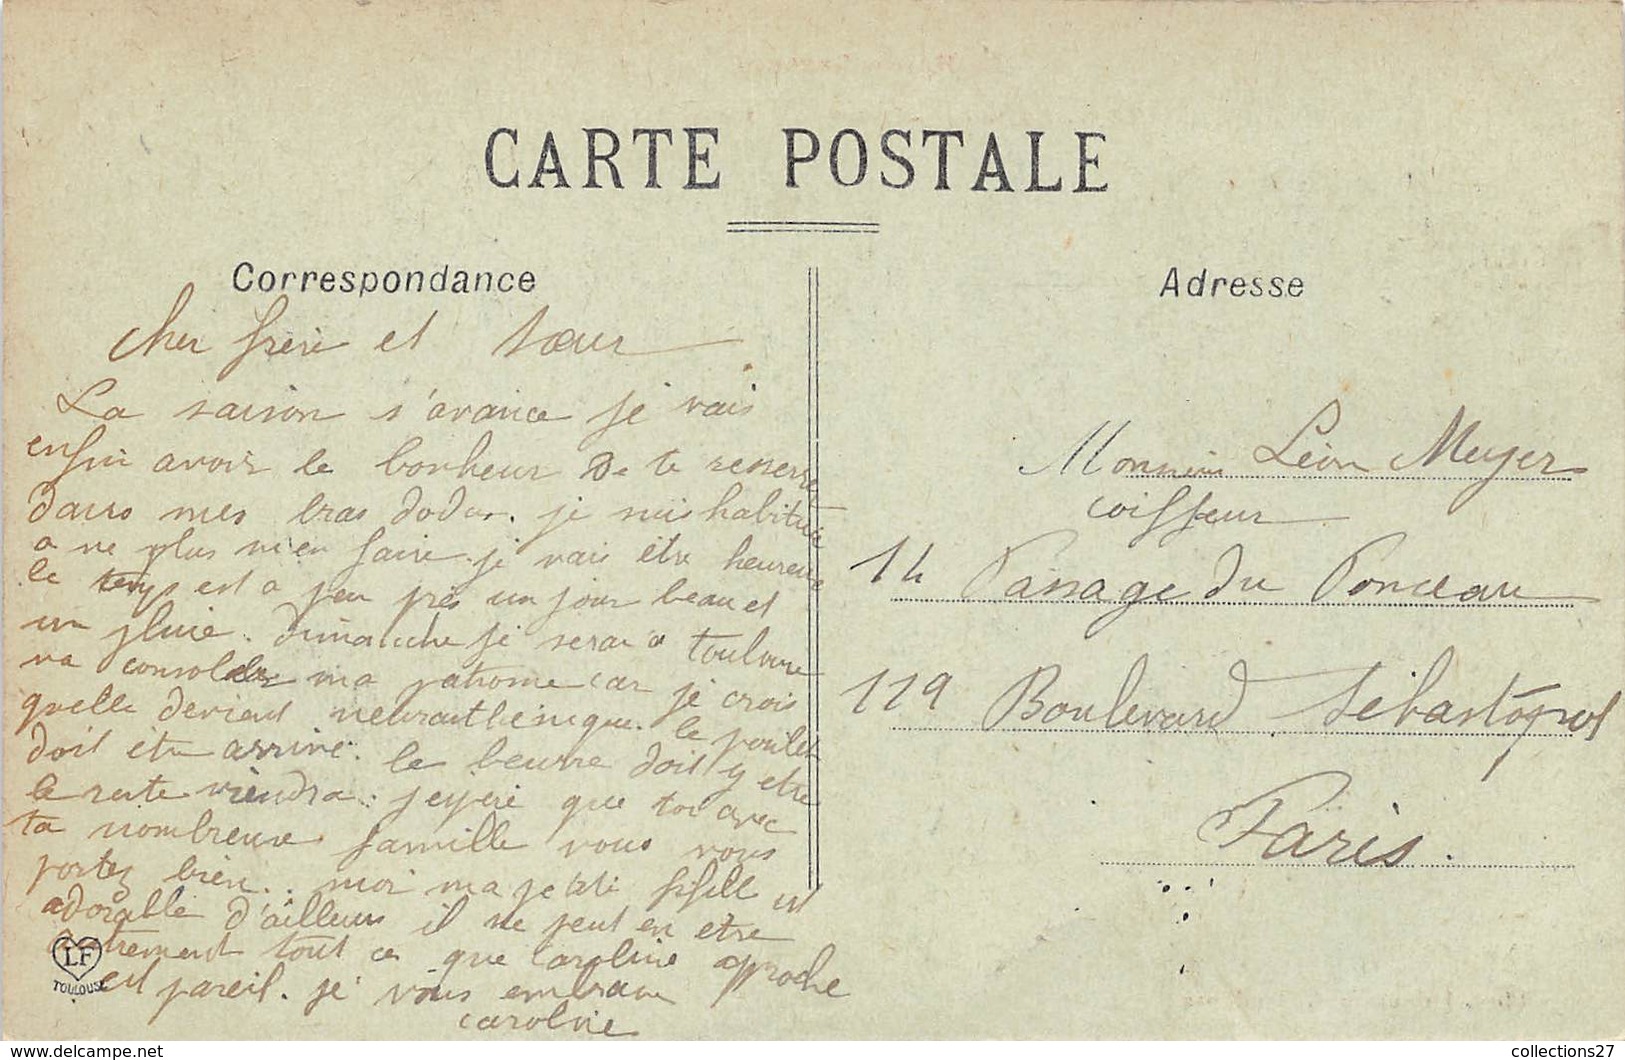 CARTE POSTALE
Correspondance
Adresse
cher frère et sœur
La saison s'avance je vais
enfin avoir le bonheur De te resserrer
dans mes bras dodus. je suis habituée
a ne plus rien faire. je vais être heureuse
le temps est a peu près un jour beau et
un pluie. Dimanche je serai a Toulouse
va consoler ma patrone car je crois
quelle devient neurasthénique. le poulet
doit être arrivé. le beurre doit y etre
le reste viendra. j'espère que toi avec
ta nombreuse famille vous vous
portez bien.. moi ma petite fifille est
adorable d'ailleurs il ne peut en etre
autrement tout ce que Caroline approche
est pareil. je vous embrasse
Caroline
Monsieur Léon Meyer
coiffeur
14 Passage du Ponceau
119 Boulevard Sébastopol
Paris.
LF
TOULOUSE
delcampe.net
collections27